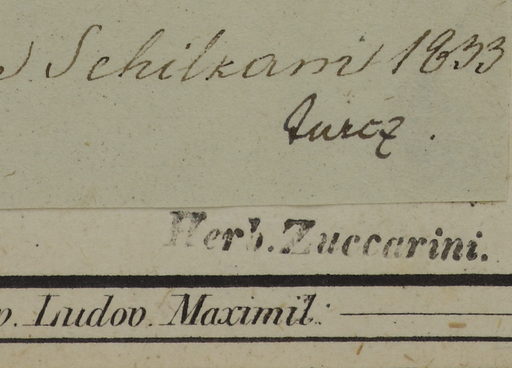 Schilkam 1833
Turcz.
Herb. Zuccarini.
Ludov. Maximil: